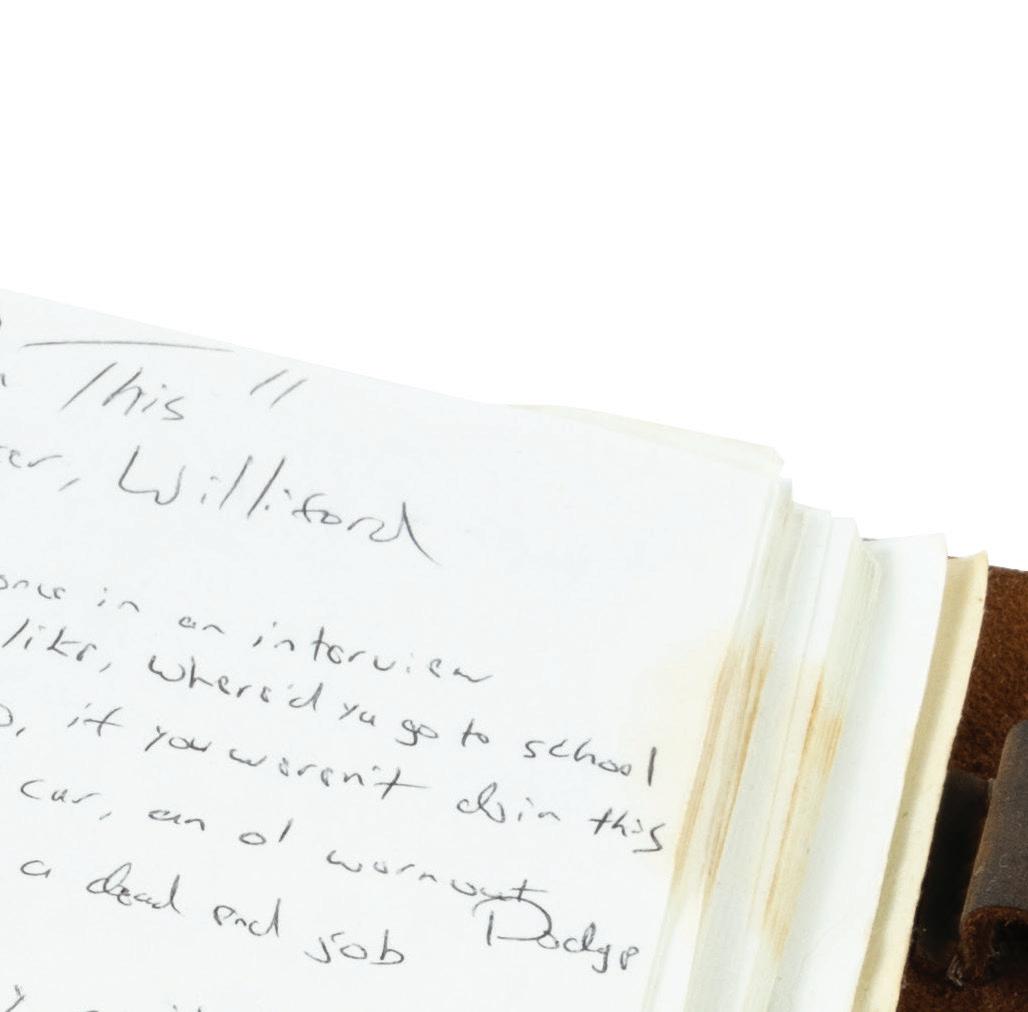 This "
Williford
in an interview
like, where'd ya go to school
if you weren't doin this
car, an ol wornout
Dodge
a dead end job